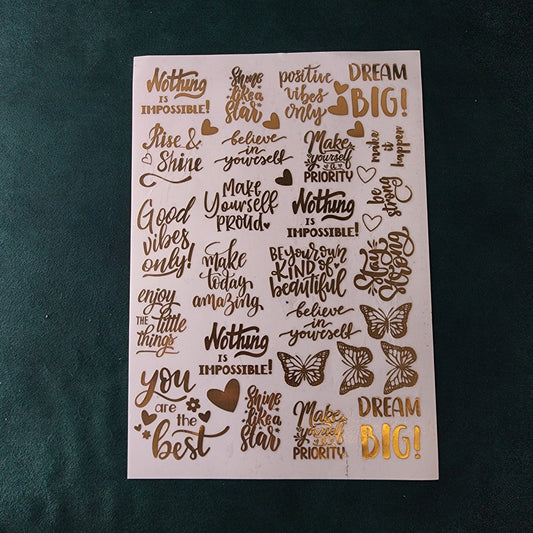 Nothing
IS
IMPOSSIBLE!
Shine
like a
star
positive
vibes
only
DREAM
BIG!
Rise &
Shine
believe
in
yourself
Make
yourself
a
PRIORITY
make
it
happen
be
strong
Good
vibes
only!
Make
Yourself
proud
Nothing
IS
IMPOSSIBLE!
Stay
Strong
make
today
amazing
BE YOUR OWN
KIND of
beautiful
enjoy
THE little
things
believe
in
yourself
Nothing
IS
IMPOSSIBLE!
you
are the
best
Shine
like a
star
Make
yourself
a
PRIORITY
DREAM
BIG!